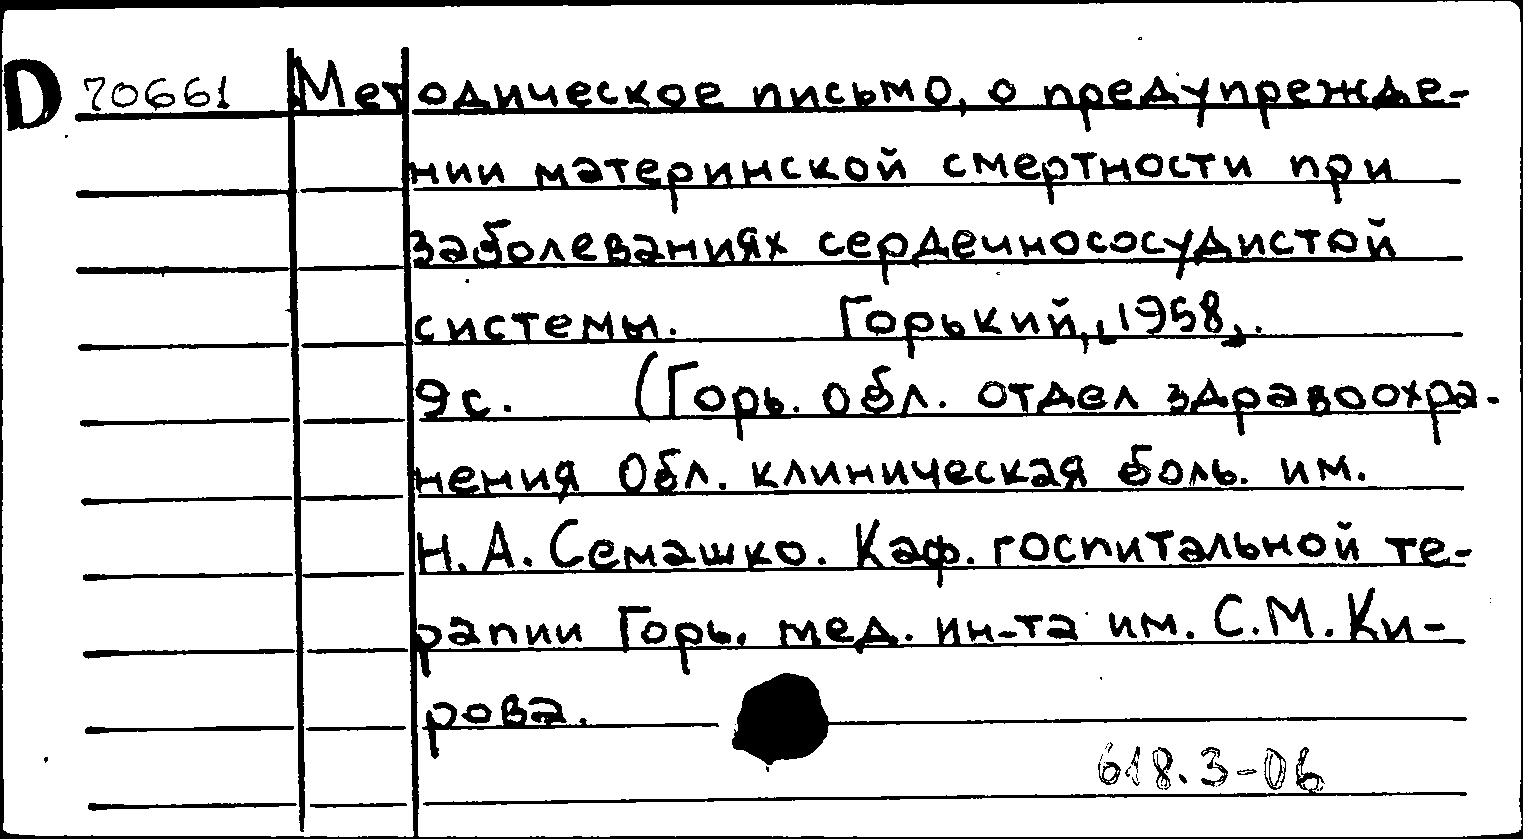 D 70661 Методическое письмо, о предупрежде-
нии материнской смертности при
заболеваниях сердечнососудистой
системы. Горький, 1958.
9с. (Горь. обл. отдел здравоохра-
нения Обл. клиническая боль. им.
Н. А. Семашко. Каф. госпитальной те-
рапии Горь. мед. ин-та им. С.М. Ки-
рова.
618.3-06